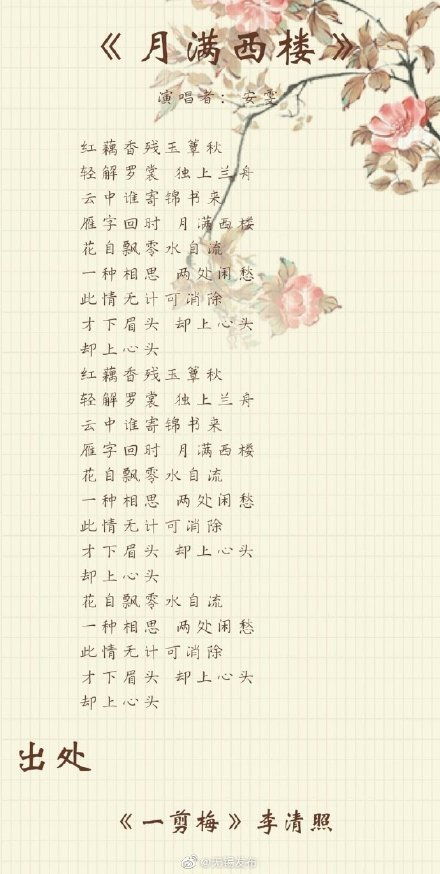 《月满西楼》
演唱者：安雯
红藕香残玉簟秋
轻解罗裳 独上兰舟
云中谁寄锦书来
雁字回时 月满西楼
花自飘零水自流
一种相思 两处闲愁
此情无计可消除
才下眉头 却上心头
却上心头
红藕香残玉簟秋
轻解罗裳 独上兰舟
云中谁寄锦书来
雁字回时 月满西楼
花自飘零水自流
一种相思 两处闲愁
此情无计可消除
才下眉头 却上心头
却上心头
花自飘零水自流
一种相思 两处闲愁
此情无计可消除
才下眉头 却上心头
却上心头
出处
《一剪梅》李清照
@无锡发布